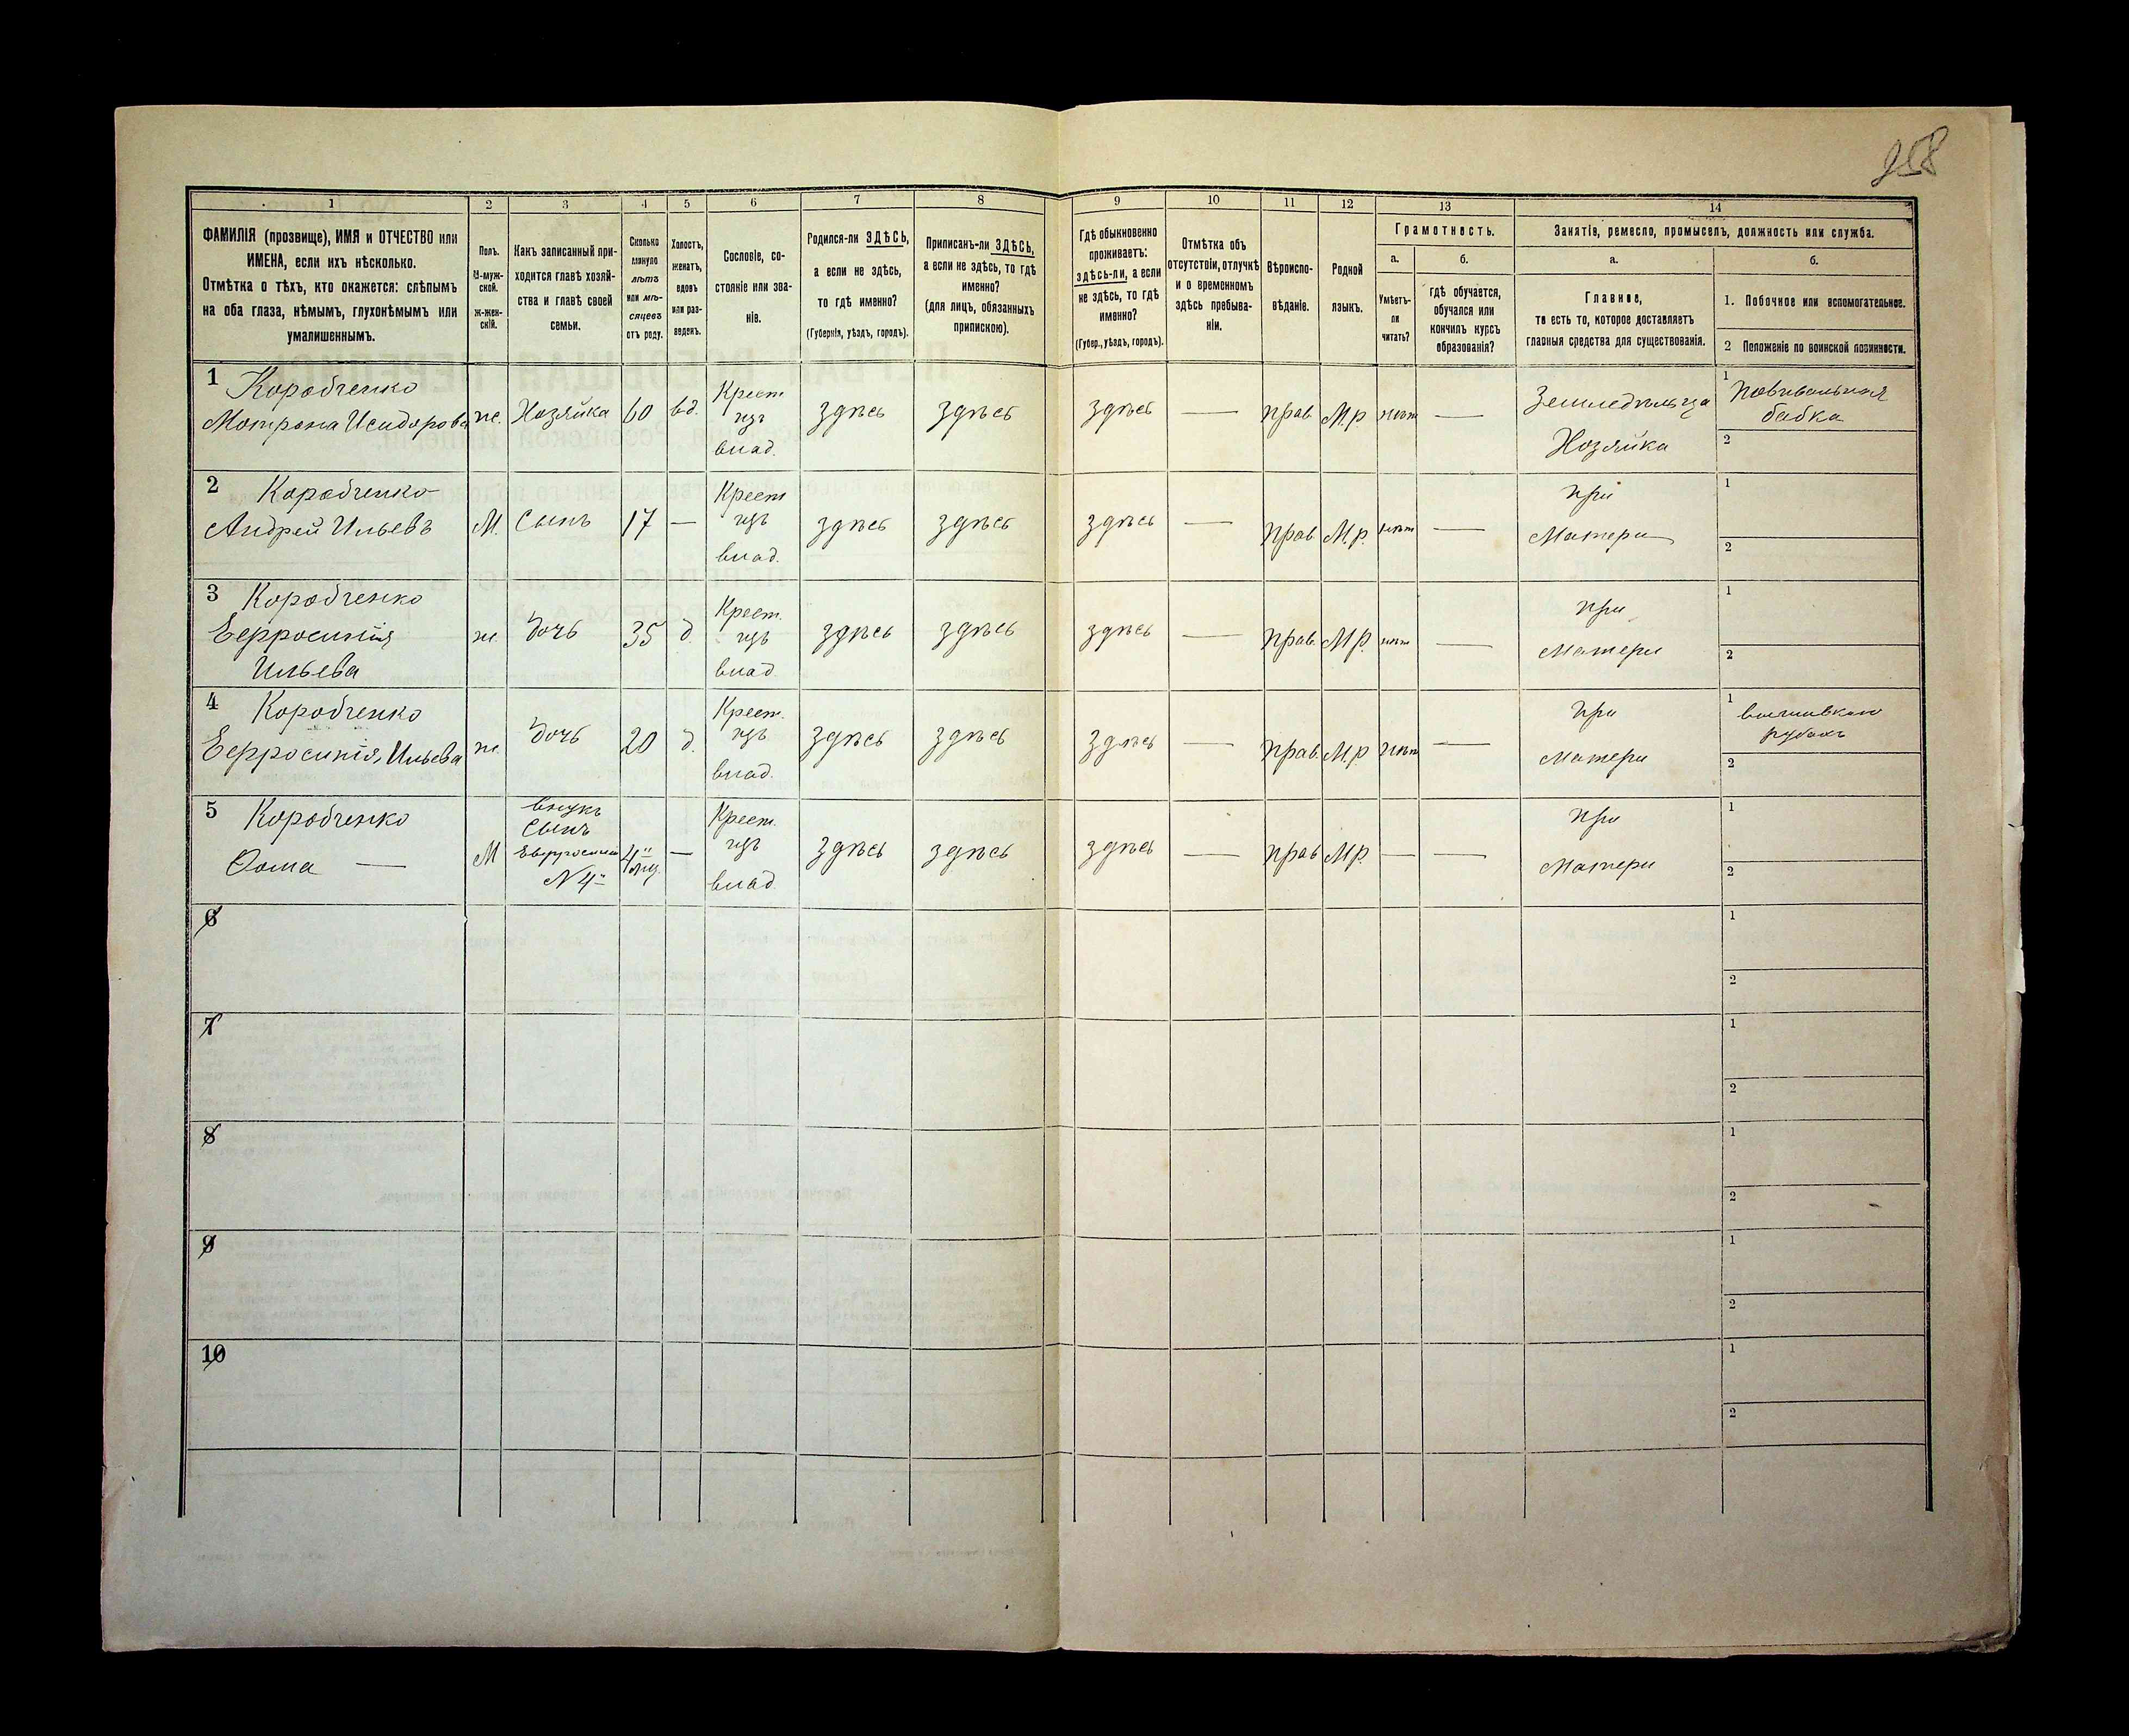 958
1
2
3
4
5
6
7
8
9
10
11
12
13
14
ФАМИЛІЯ (прозвище), ИМЯ и ОТЧЕСТВО или
ИМЕНА, если ихъ нѣсколько.
Отмѣтка о тѣхъ, кто окажется: слѣпымъ
на оба глаза, нѣмымъ, глухонѣмымъ или
умалишеннымъ.
Полъ.
М-муж-
ской.
ж-жен-
скій.
Какъ записанный при-
ходится главѣ хозяй-
ства и главѣ своей
семьи.
Сколько
минуло
лѣтъ
или мѣ-
сяцевъ
отъ роду.
Холостъ,
женатъ,
вдовъ
или раз-
веденъ.
Сословіе, со-
стояніе или зва-
ніе.
Родился-ли ЗДѢСЬ,
а если не здѣсь,
то гдѣ именно?
(Губернія, уѣздъ, городъ).
Приписанъ-ли ЗДѢСЬ,
а если не здѣсь, то гдѣ
именно?
(для лицъ, обязанныхъ
припискою).
Гдѣ обыкновенно
проживаетъ:
здѣсь-ли, а если
не здѣсь, то гдѣ
именно?
(Губер., уѣздъ, городъ).
Отмѣтка объ
отсутствіи, отлучкѣ
и о временномъ
здѣсь пребыва-
ніи.
Вѣроиспо-
вѣданіе.
Родной
языкъ.
Грамотность.
а.
Умѣетъ-
ли
читать?
б.
гдѣ обучается,
обучался или
кончилъ курсъ
образованія?
Занятіе, ремесло, промыселъ, должность или служба.
а.
Главное,
то есть то, которое доставляетъ
главныя средства для существованія.
б.
1. Побочное или вспомогательное.
2 Положеніе по воинской повинности.
1 Коробченко
Мотрона Исидорова
ж.
Хозяйка
60
вд.
Крест
изъ
влад.
здѣсь
здѣсь
здѣсь
—
прав.
М.р
нѣт
—
Земледѣльца
Хозяйка
1 Повивальная
бабка
2
2 Коробченко
Андрей Ильевъ
М.
Сынъ
17
—
Крест
изъ
влад.
здѣсь
здѣсь
здѣсь
—
прав
М.р.
нѣт
—
при
Матери
1
2
3 Коробченко
Ефросинія
Ильева
ж.
дочь
35
д.
Крест.
изъ
влад.
здѣсь
здѣсь
здѣсь
—
прав.
М.р.
нѣт
—
при
матери
1
2
4 Коробченко
Ефросинія Ильева
ж.
дочь
20
д.
Крест.
изъ
влад.
здѣсь
здѣсь
здѣсь
—
прав.
М.р
нѣт
—
при
матери
1
рубахъ
2
5 Коробченко
Ѳома —
М
внукъ
сынъ
Ефросиніи
№ 4й
4
мц.
—
Крест.
изъ
влад.
здѣсь
здѣсь
здѣсь
—
прав
М.р.
—
—
при
Матери
1
2
6
1
2
7
1
2
8
1
2
9
1
2
10
1
2